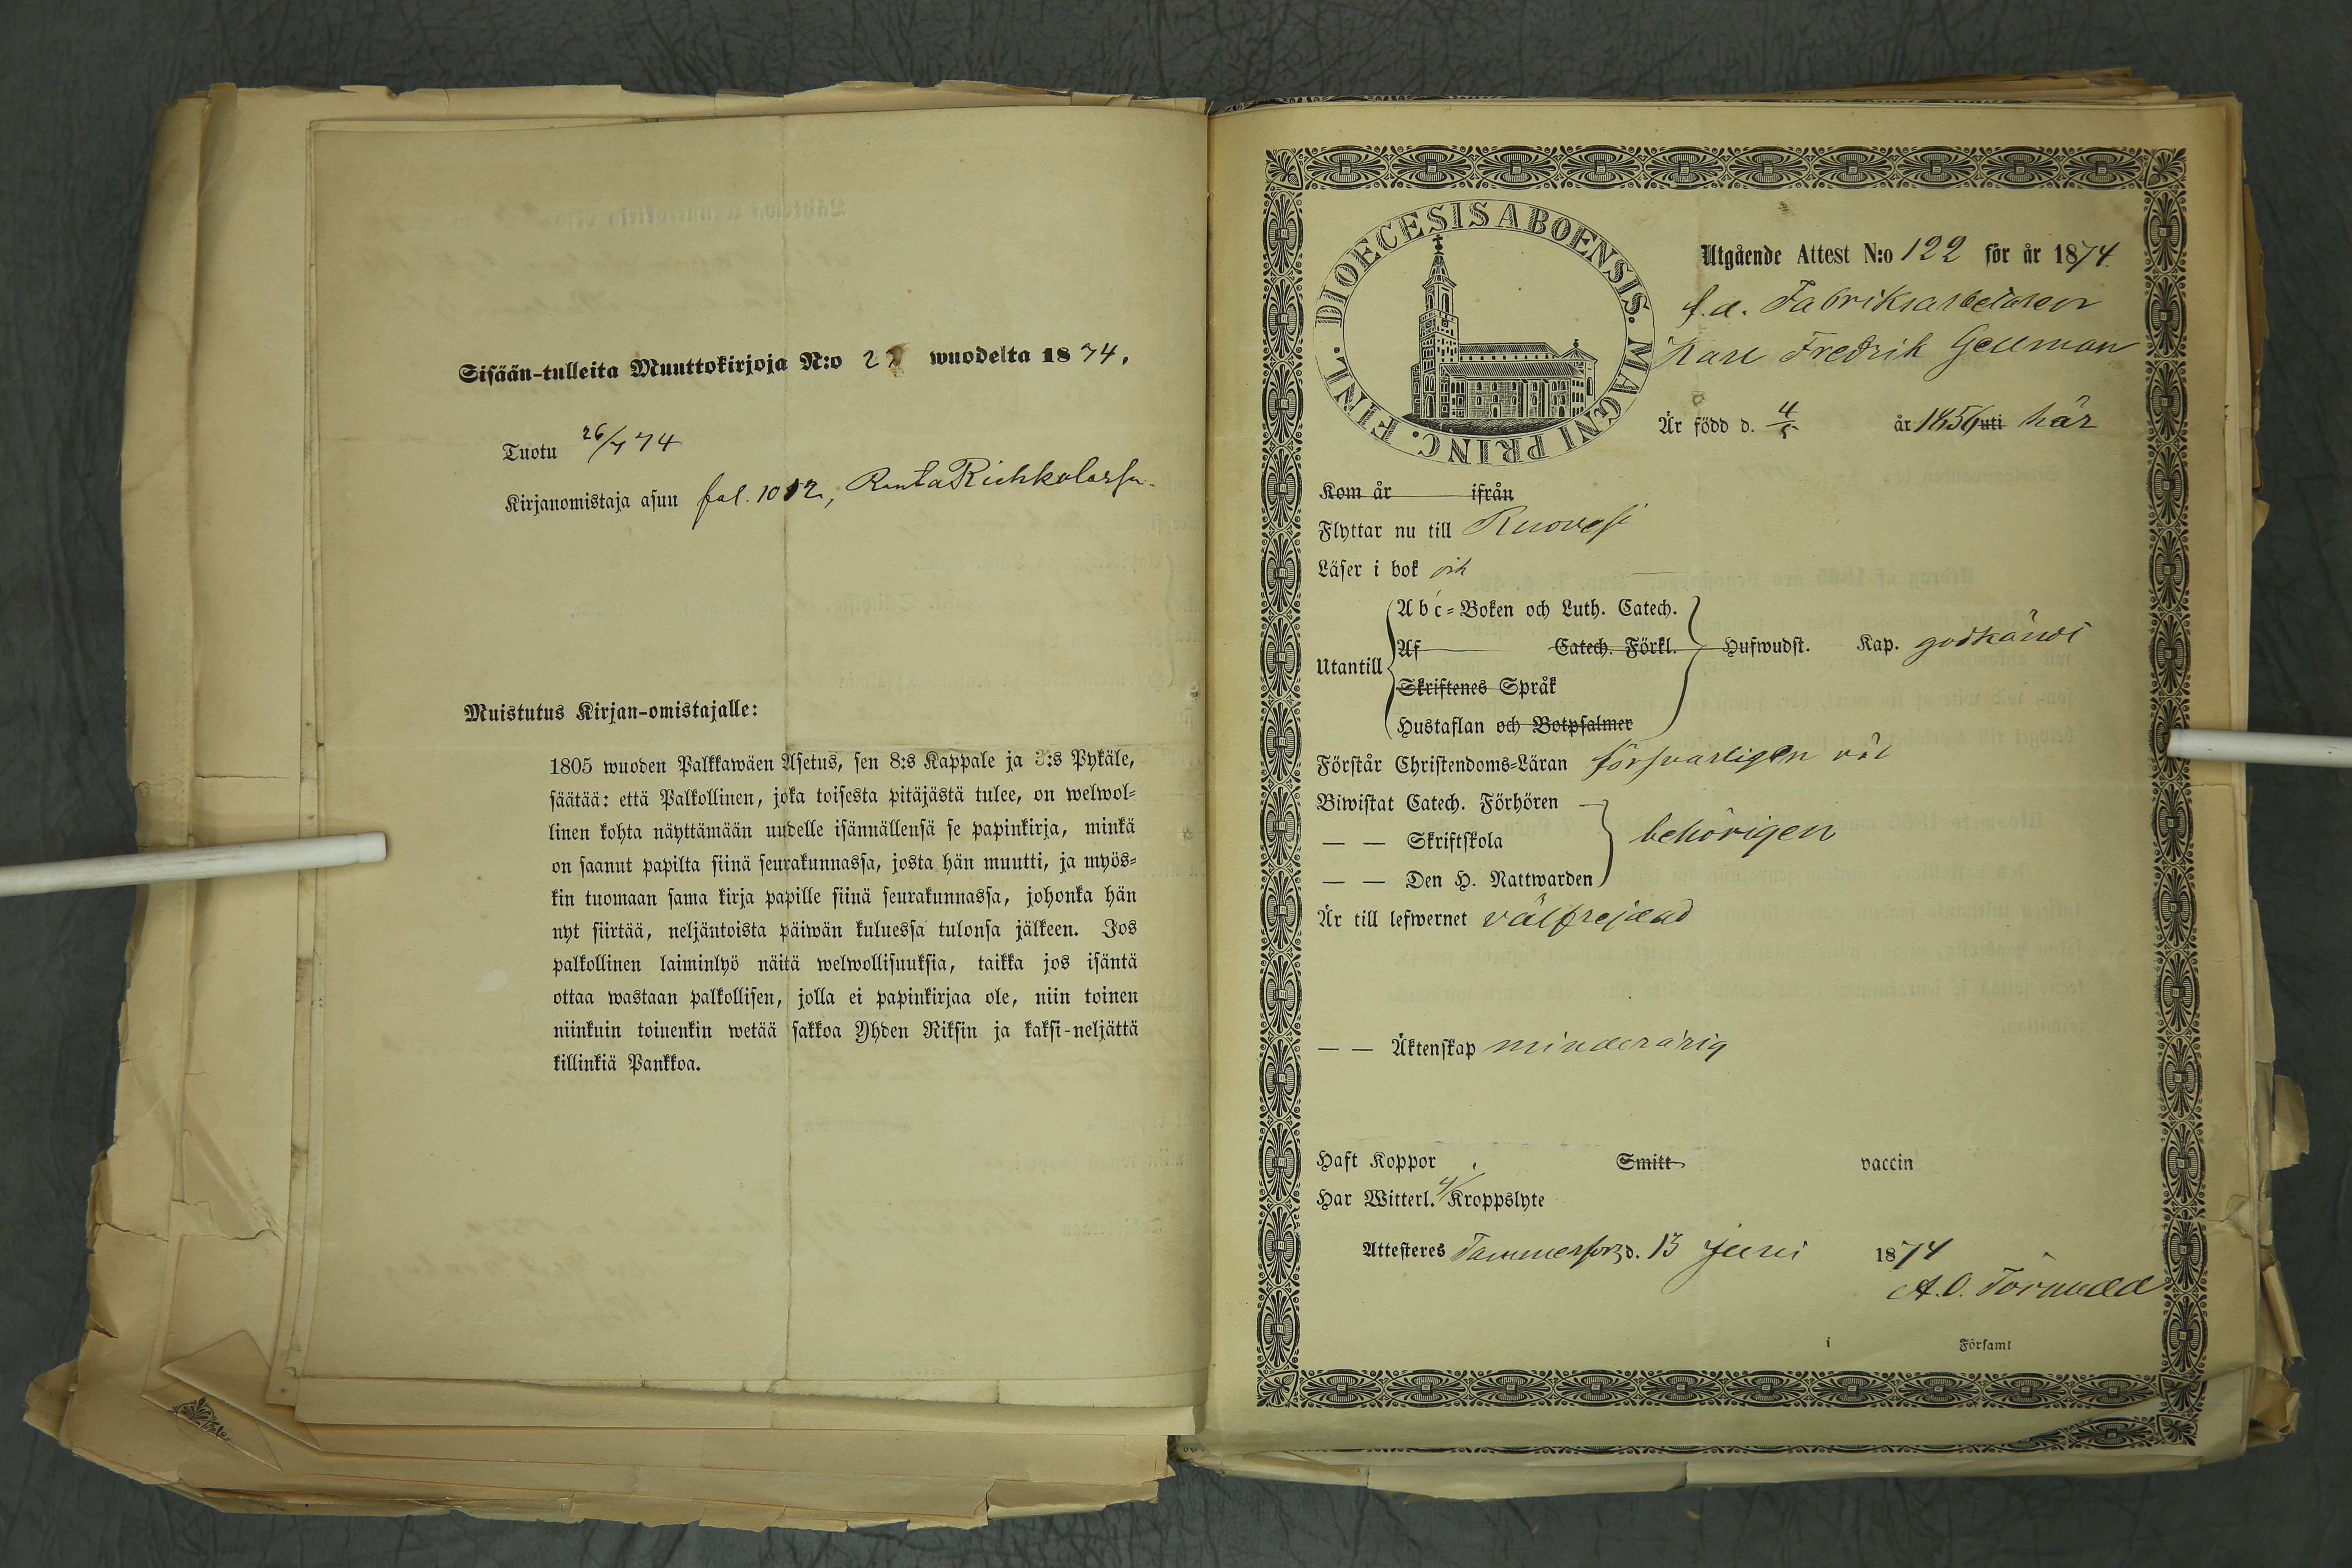 Sisään-tulleita Muuttokirjoja N:o 27 wuodelta 1874.
Tuotu 26/7 74
Kirjanomistaja asuu fol. 1012, RantaRichkolassa.
Muistutus Kirjan-omistajalle:
1805 wuoden Palkkawäen Asetus, sen 8:s Kappale ja 3:s Pykäle,
säätää: että Palkollinen, joka toisesta pitäjästä tulee, on welwol-
linen kohta näyttämään uudelle isännällensä se papinkirja, minkä
on saanut papilta siinä seurakunnassa, josta hän muutti, ja myös-
kin tuomaan sama kirja papille siinä seurakunnassa, johonka hän
nyt siirtää, neljäntoista päiwän kuluessa tulonsa jälkeen. Jos
palkollinen laiminlyö näitä welwollisuuksia, taikka jos isäntä
ottaa wastaan palkollisen, jolla ei papinkirjaa ole, niin toinen
niinkuin toinenkin wetää sakkoa Yhden Riksin ja kaksi-neljättä
killinkiä Pankkoa.
DIOECESIS ABOENSIS. MAGNI PRINC. FINL.
Utgående Attest N:o 122 för år 1874.
f.d. Fabriksarbetaren
Karl Fredrik Gellman
Är född d. 4/5 år 1856 uti här
Kom år ifrån
Flyttar nu till Ruovesi
Läser i bok
Utantill
Abc-Boken och Luth. Catech.
Af Catech. Förkl. Hufwudst. Kap. godkändt
Skriftenes Språk
Hustaflan och Botpsalmer
Förstår Christendoms-Läran försvarligen väl
Biwistat Catech. Förhören
— — Skriftskola behörigen
— — Den H. Nattwarden
Är till lefwernet välfrejdad
— — Äktenskap minderårig
Haft Koppor Smitt vaccin
Har Witterl. Kroppslyte
Attesteres Tammerfors d. 13 Juni 1874
A. O. Törnudd
i Församl